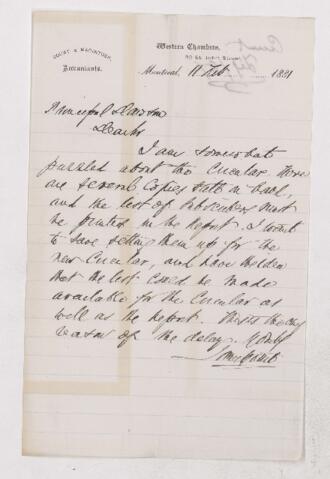 COURT & MACINTOSH,
Accountants.
Western Chambers,
Montreal, 11 Feb 1881
Principal Dawson
Dear Sir
I am somewhat
puzzled about the Circular. There
are several Copies still in hand,
and the list of Subscribers must
be printed in the Report. I want
to save setting them up for the
new Circular, and have the idea
that the list could be made
available for the Circular as
well as the Report. This is the only
reason of the delay. Yours